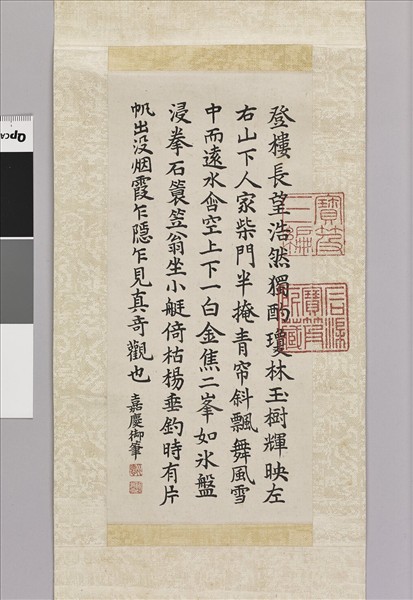 登樓長望浩然獨酌瓊林玉樹輝映左
右山下人家柴門半掩青帘斜飄舞風雪
中而遠水含空上下一白金焦二峯如氷盤
浸拳石簑笠翁坐小艇倚枯楊垂釣時有片
帆出没烟霞乍隱乍見真奇觀也
嘉慶御筆
寶笈三編
石渠寶笈所藏
Opca